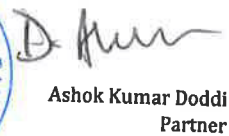 Ashok Kumar Doddi
Partner